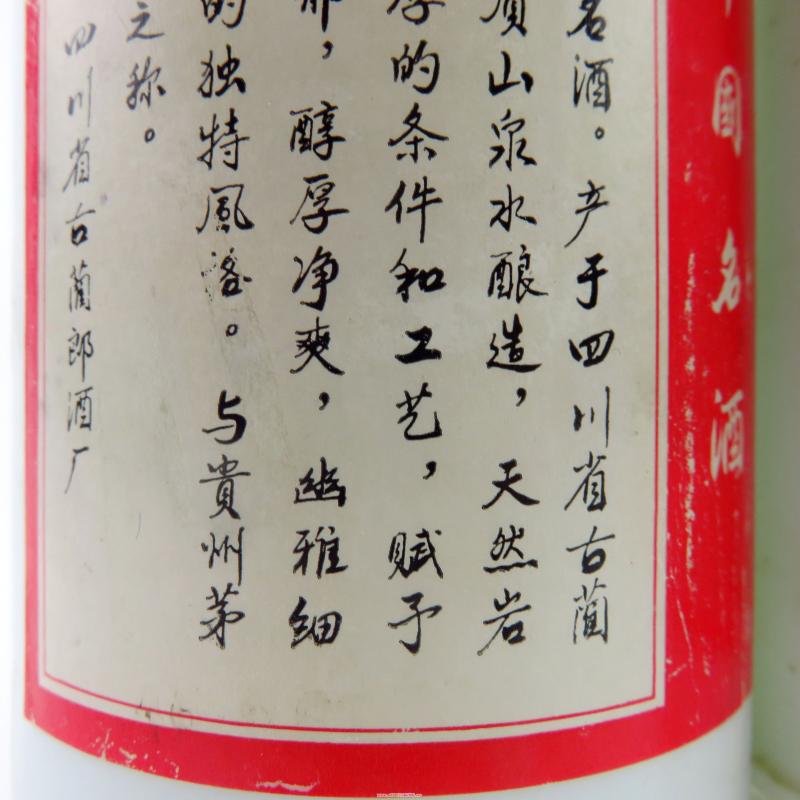 国名酒
名酒。产于四川省古蔺
山泉水酿造，天然岩
的条件和工艺，赋予
，醇厚净爽，幽雅细
的独特風格。与貴州茅
之称。
四川省古蔺郎酒厂